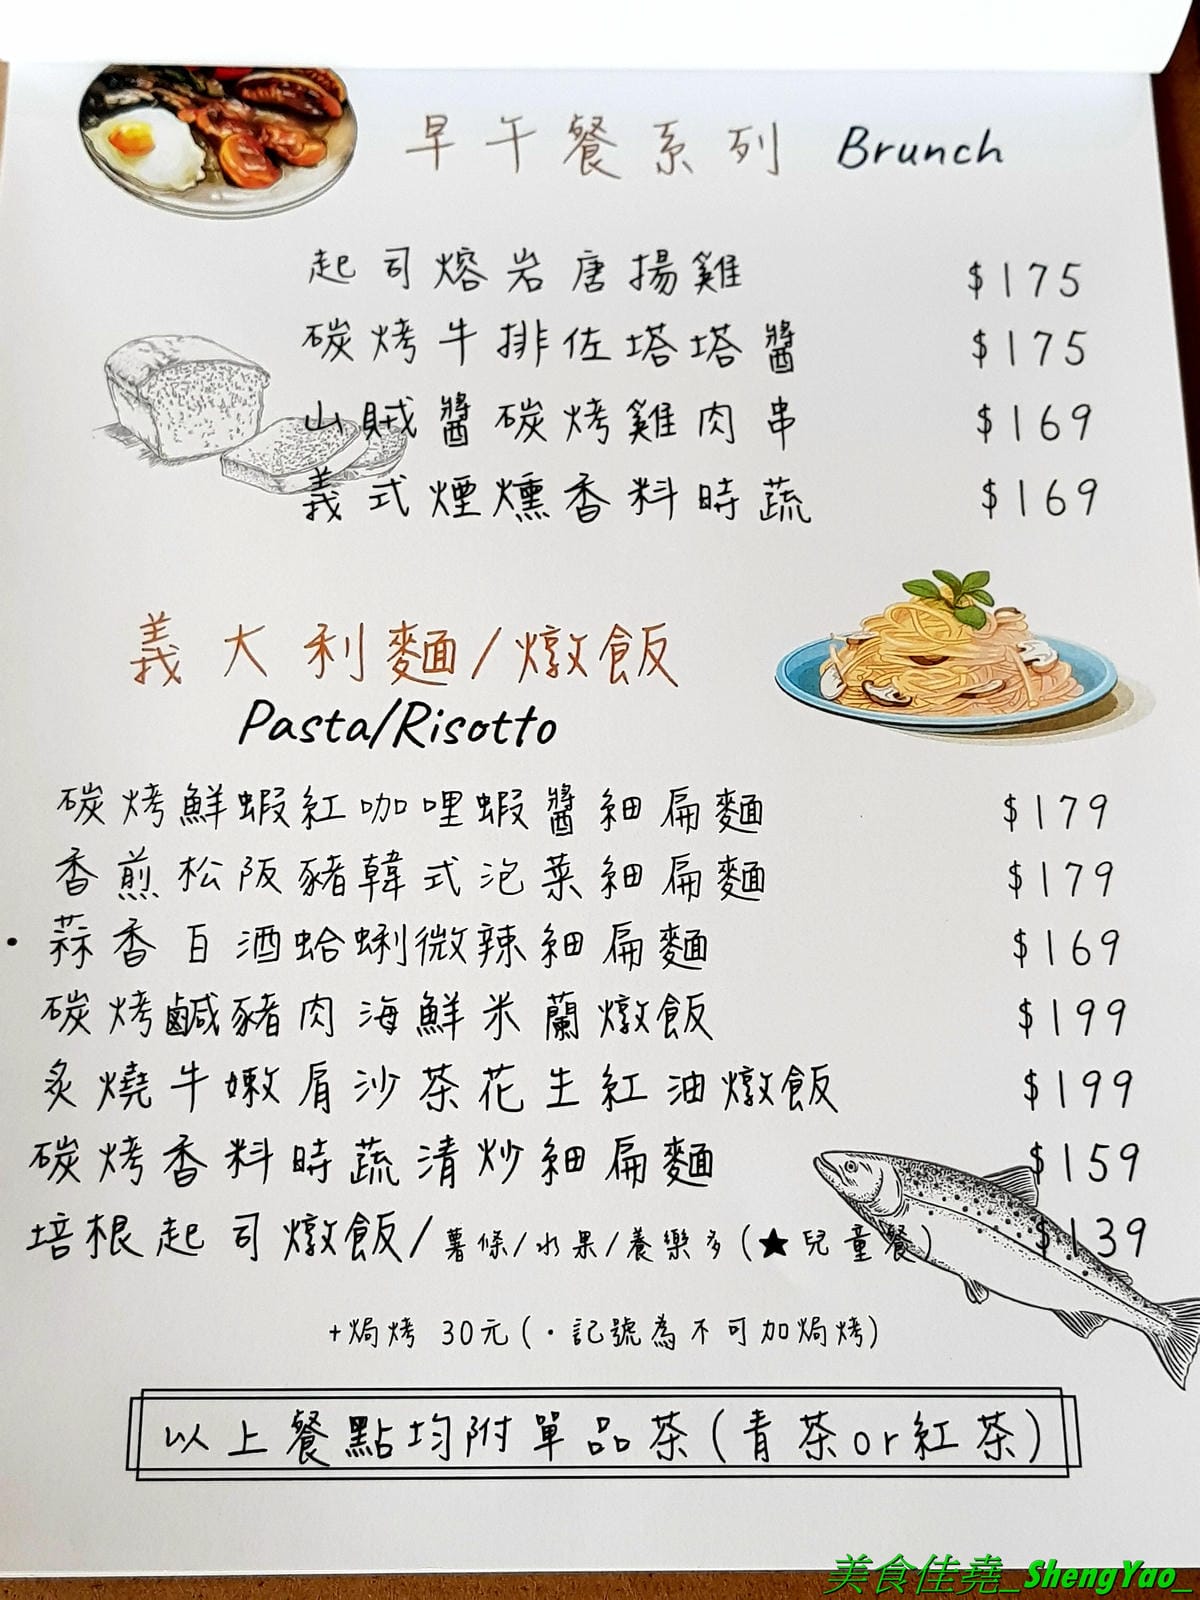 早午餐系列 Brunch
起司熔岩唐揚雞 $175
碳烤牛排佐塔塔醬 $175
山賊醬碳烤雞肉串 $169
義式煙燻香料時蔬 $169
義大利麵/燉飯
Pasta/Risotto
碳烤鮮蝦紅咖哩蝦醬細扁麵 $179
香煎松阪豬韓式泡菜細扁麵 $179
·蒜香白酒蛤蜊微辣細扁麵 $169
碳烤鹹豬肉海鮮米蘭燉飯 $199
炙燒牛嫩肩沙茶花生紅油燉飯 $199
碳烤香料時蔬清炒細扁麵 $159
培根起司燉飯/薯條/水果/養樂多(★兒童餐) $139
+焗烤 30元(·記號為不可加焗烤)
以上餐點均附單品茶(青茶or紅茶)
美食佳堯_ShengYao_